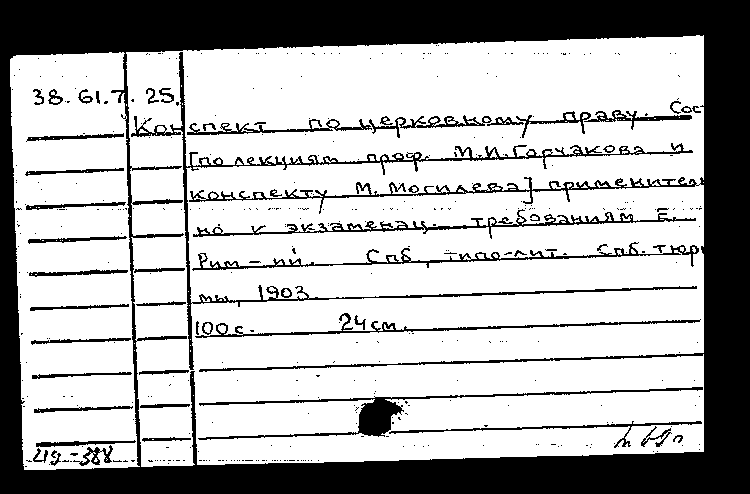 38.61.7.25.
Конспект по церковному праву. Сос
[по лекциям проф. М.И.Горчакова и
конспекту М. Могилева] применитель
но к экзаменац. требованиям Е.
Рим-ий. Спб, типо-лит. Спб. тюрь
мы, 1903.
100 с. 24 см.
49-388